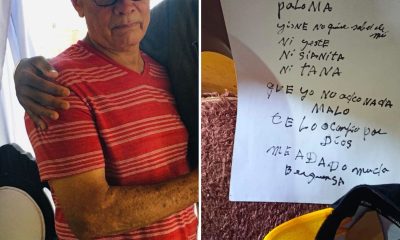 paloMA
yioNE NO quiere saber de mi
Ni yeste
Ni GiaNita
Ni TaNA
QUE yo NO agO NADA
MALO
te LO juro por
DiOS
ME A DADO mucha
Berguensa